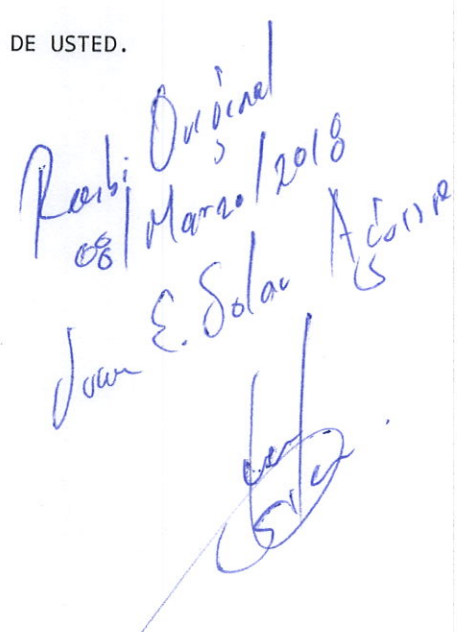 DE USTED.
Recibi Original
08/Marzo/2018
Juan E. Solar